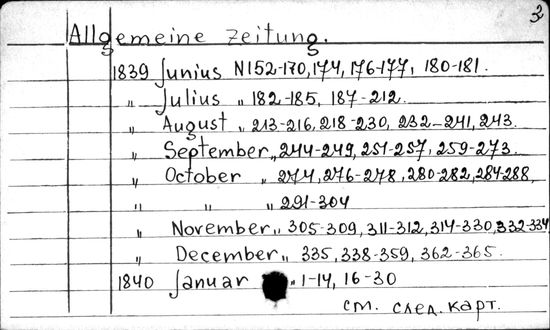 2
Allgemeine Zeitung.
1839 Junius N152-170, 174, 176-177, 180-181.
„ Julius „ 182-185, 187-212.
„ August „ 213-216, 218-230, 232-241, 243.
„ September „ 244-249, 251-257, 259-273.
„ October „ 274, 276-278, 280-282, 284-288,
„ „ „ 291-304
„ November „ 305-309, 311-312, 314-330, 332-334
„ December „ 335, 338-359, 362-365.
1840 Januar „ 1-14, 16-30
см. след. карт.